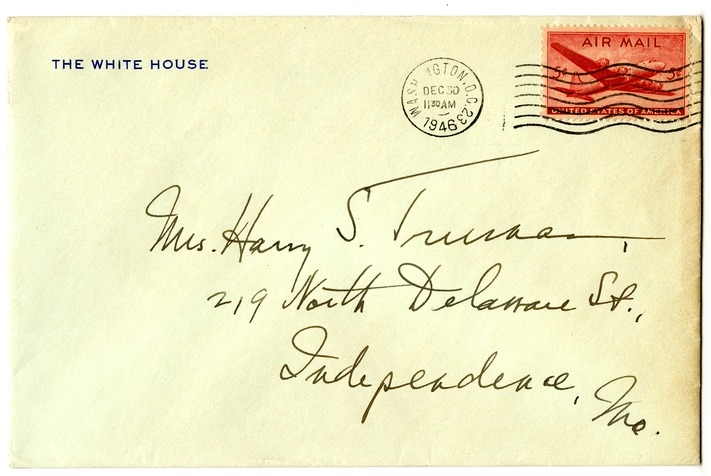 THE WHITE HOUSE
WASHINGTON, D.C. 23
DEC 30
11 30 AM
1946
AIR MAIL
5¢ 5¢
UNITED STATES OF AMERICA
Mrs. Harry S. Truman,
219 North Delaware St.,
Independence, Mo.